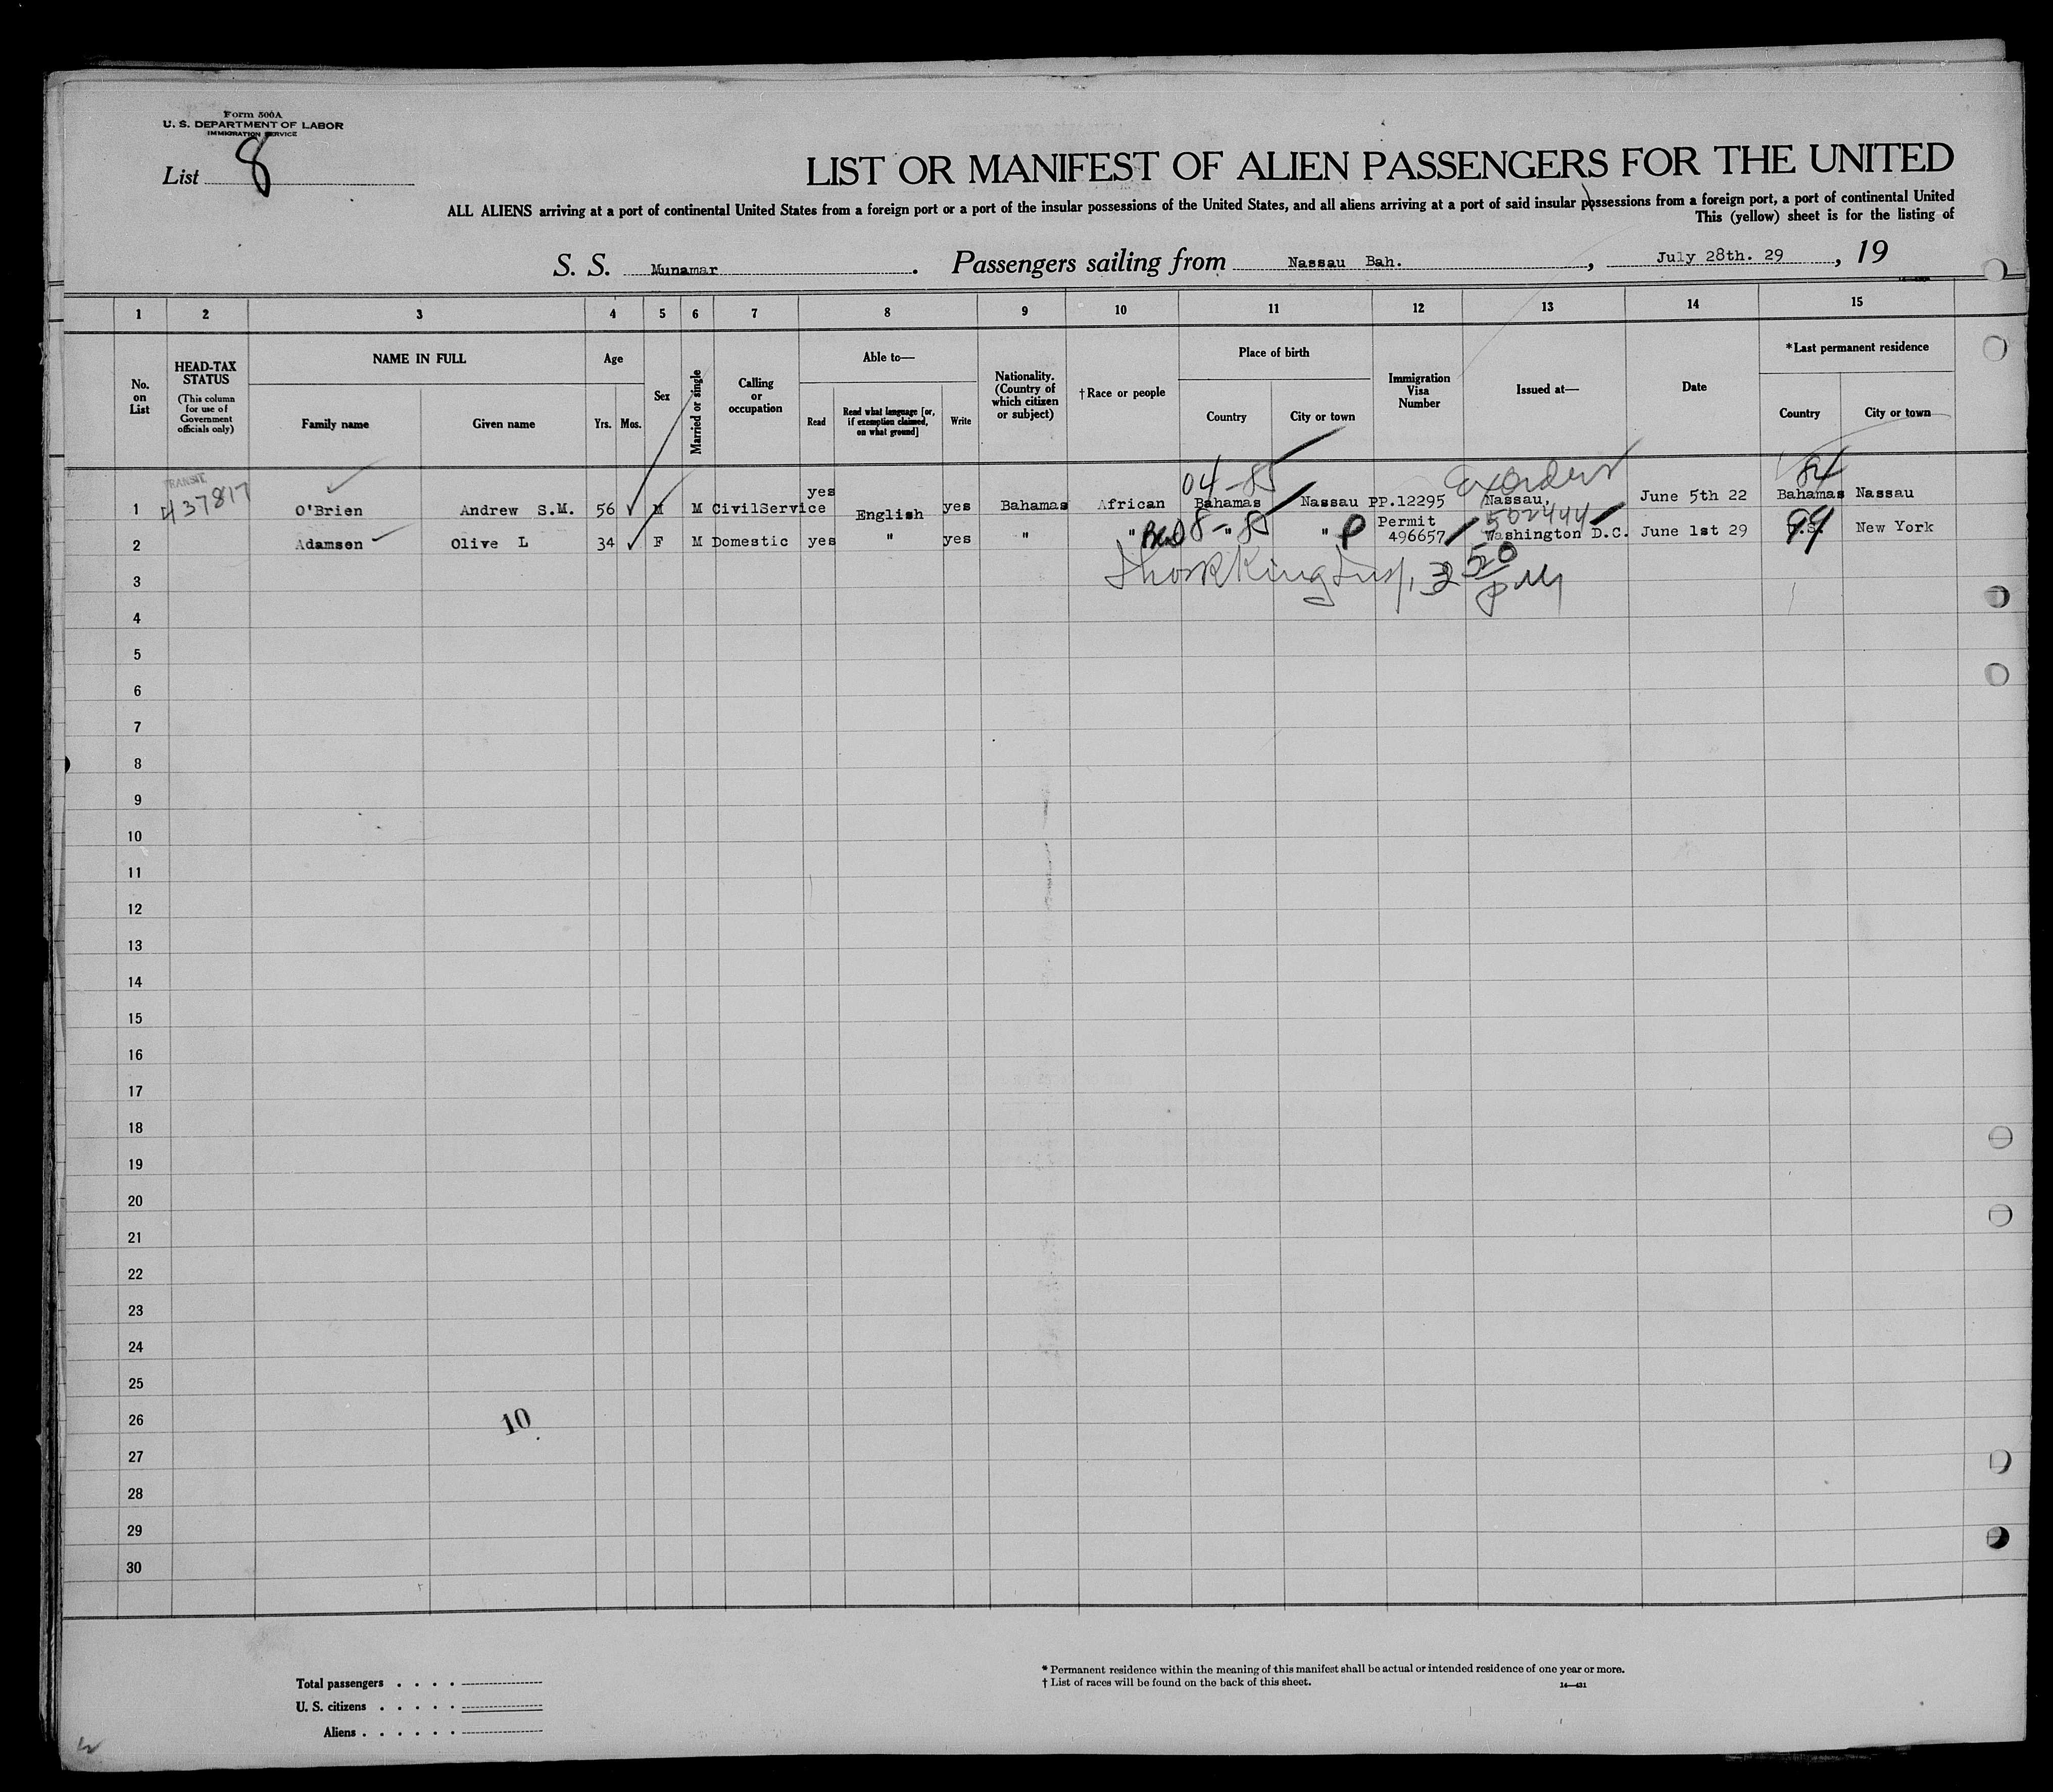 Form 500A
U. S. DEPARTMENT OF LABOR
IMMIGRATION SERVICE
List 8
LIST OR MANIFEST OF ALIEN PASSENGERS FOR THE UNITED
ALL ALIENS arriving at a port of continental United States from a foreign port or a port of the insular possessions of the United States, and all aliens arriving at a port of said insular possessions from a foreign port, a port of continental United
This (yellow) sheet is for the listing of
S. S. Munamar. Passengers sailing from Nassau Bah., July 28th. 29, 19
1 2 3 4 5 6 7 8 9 10 11 12 13 14 15
No. on List
HEAD-TAX STATUS (This column for use of Government officials only)
NAME IN FULL
Family name Given name
Age
Yrs. Mos.
Sex
Married or single
Calling or occupation
Able to—
Read Read what language [or, if exemption claimed, on what ground] Write
Nationality. (Country of which citizen or subject)
† Race or people
Place of birth
Country City or town
Immigration Visa Number
Issued at—
Date
*Last permanent residence
Country City or town
04-85 Ex Orders 84
1 TRANSIT 437817 O'Brien Andrew S.M. 56 M M CivilService yes English yes Bahamas African Bahamas Nassau PP.12295 Nassau, June 5th 22 Bahamas Nassau
502444
2 Adamsen Olive L 34 F M Domestic yes " yes " " 8-85 " " P Permit 496657 Washington D.C. June 1st 29 99 New York
3 King Insp. 3 50 PM
4
5
6
7
8
9
10
11
12
13
14
15
16
17
18
19
20
21
22
23
24
25
26 10
27
28
29
30
Total passengers . . . .
U. S. citizens . . . . .
Aliens . . . . . .
* Permanent residence within the meaning of this manifest shall be actual or intended residence of one year or more.
† List of races will be found on the back of this sheet.
14—431